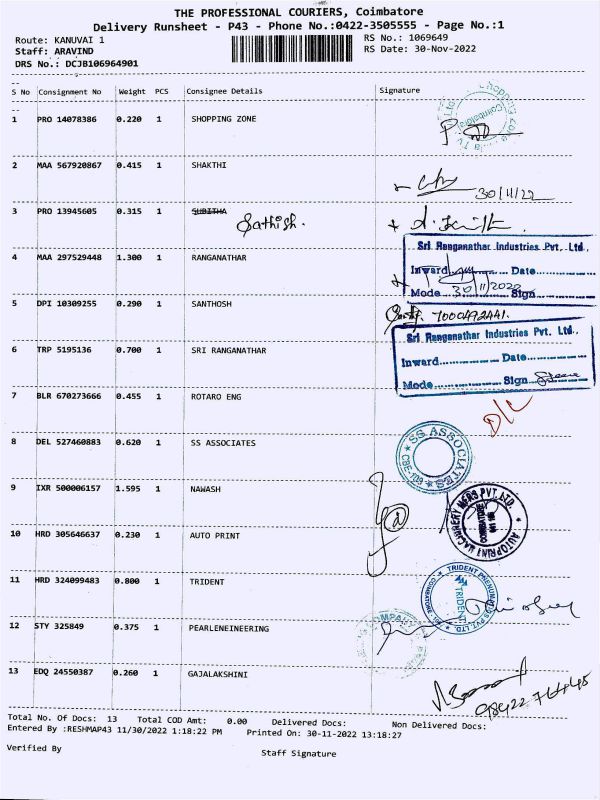 THE PROFESSIONAL COURIERS, Coimbatore
Delivery Runsheet - P43 - Phone No.:0422-3505555 - Page No.:1
Route: KANUVAI 1 RS No.: 1069649
Staff: ARAVIND RS Date: 30-Nov-2022
DRS No.: DCJB106964901
S No Consignment No Weight PCS Consignee Details Signature
1 PRO 14078386 0.220 1 SHOPPING ZONE
2 MAA 567920867 0.415 1 SHAKTHI
30/11/22
3 PRO 13945605 0.315 1 SUBITHA
Sathish.
Sri Ranganathar Industries Pvt. Ltd.,
4 MAA 297529448 1.300 1 RANGANATHAR
Inward Date
Mode 30/11/2022 Sign
5 DPI 10309255 0.290 1 SANTHOSH
7000492441.
Sri Ranganathar Industries Pvt. Ltd.,
6 TRP 5195136 0.700 1 SRI RANGANATHAR
Inward Date
Mode Sign
7 BLR 670273666 0.455 1 ROTARO ENG
D/C
8 DEL 527460883 0.620 1 SS ASSOCIATES
SS ASSOCIATES
9 IXR 500006157 1.595 1 NAWASH
AUTOPRINT MACHINERY MFRS PVT. LTD.
COIMBATORE
10 HRD 305646637 0.230 1 AUTO PRINT
11 HRD 324099483 0.800 1 TRIDENT
TRIDENT
12 STY 325849 0.375 1 PEARLENEINEERING
13 EDQ 24550387 0.260 1 GAJALAKSHINI
Total No. Of Docs: 13 Total COD Amt: 0.00 Delivered Docs: Non Delivered Docs:
Entered By :RESHMAP43 11/30/2022 1:18:22 PM Printed On: 30-11-2022 13:18:27
Verified By Staff Signature